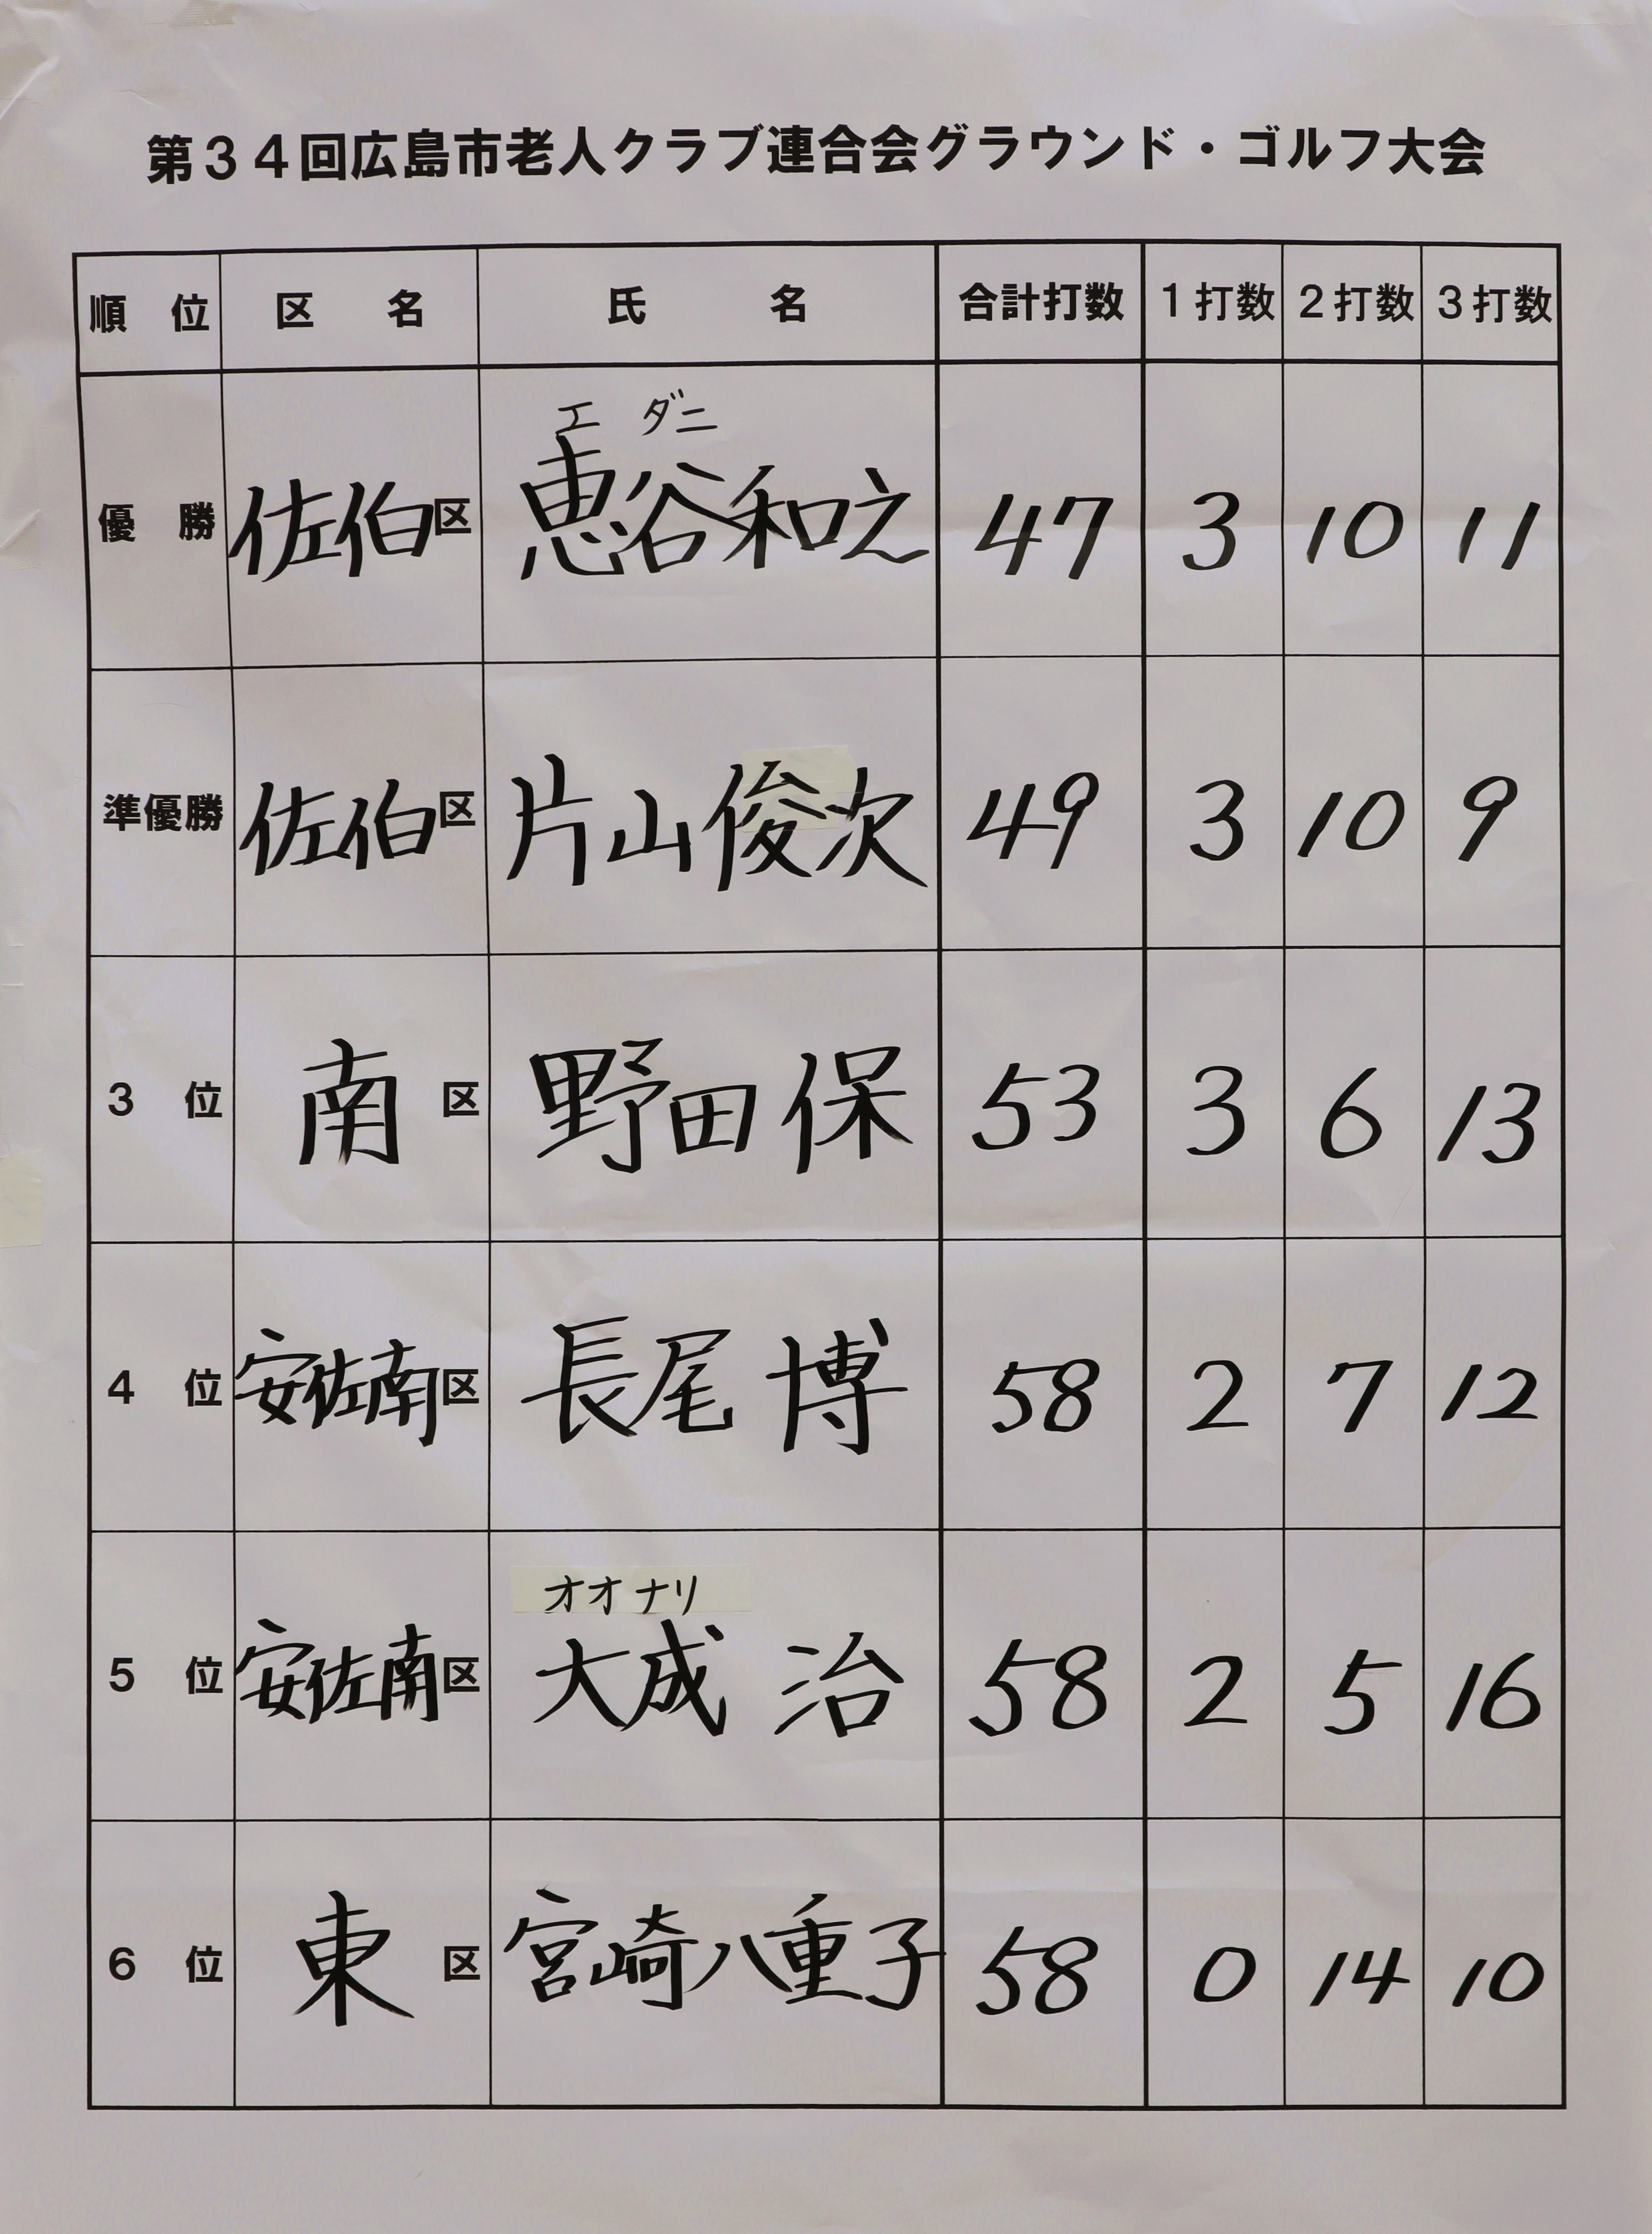 第３４回広島市老人クラブ連合会グラウンド・ゴルフ大会
順位 区名 氏名 合計打数 １打数 ２打数 ３打数
エダニ
優勝 佐伯区 恵谷和之 47 3 10 11
準優勝 佐伯区 片山俊次 49 3 10 9
３位 南区 野田保 53 3 6 13
４位 安佐南区 長尾博 58 2 7 12
オオナリ
５位 安佐南区 大成治 58 2 5 16
６位 東区 宮崎八重子 58 0 14 10